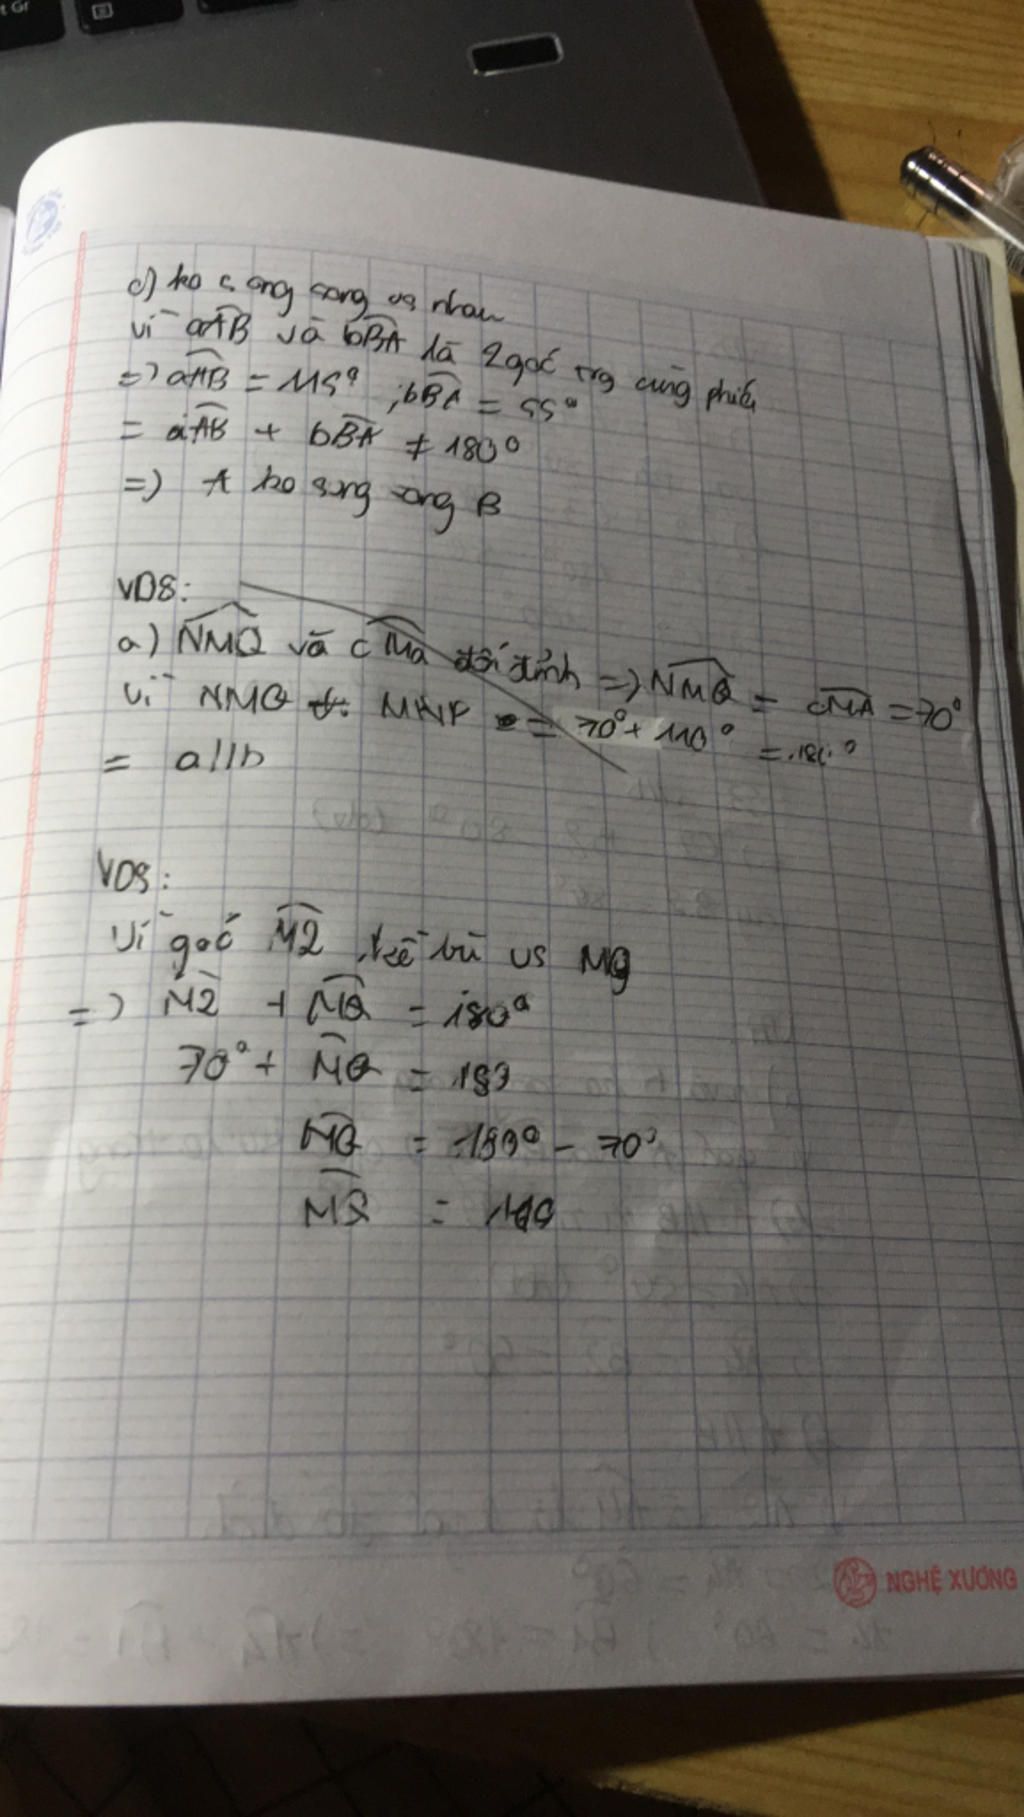 t Gr
c) ko song song vs nhau
vì aAB và bBA là 2 góc trg cùng phía
=> aAB = 115° ; bBA = 55°
= aAB + bBA ≠ 180°
=> A ko song song B
VD8:
a) NMQ và cMa đối đỉnh => NMQ = cMA = 70°
Vì NMQ + MNP = 70° + 110° = 180°
= a//b
VD8:
Vì góc M2 kề bù vs MQ
=> M2 + MQ = 180°
70° + MQ = 180
MQ = 180° - 70°
MQ = 110
NGHỆ XƯƠNG